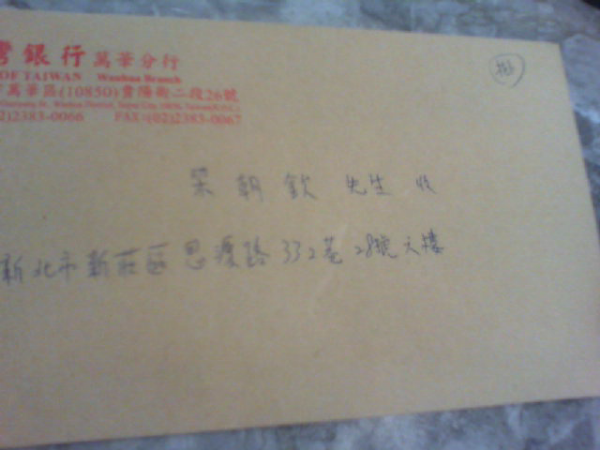 灣銀行 萬華分行
OF TAIWAN Wanhua Branch
萬華區(10850)貴陽街二段26號
2)2383-0066 FAX:(02)2383-0067
朝 欽 先生 收
新北市新莊區思源路332巷28號六樓